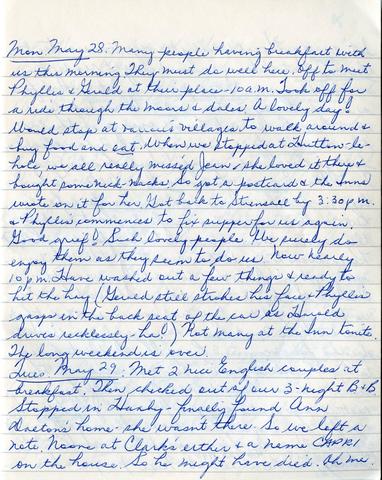 Mon May 28. Many people having breakfast with
us this morning They must do well here. Off to meet
Phyllis & Gerald at their place - 10 a.m. Took off for
a ride through the moors & dales. A lovely day!
Would stop at various villages to walk around &
buy food and eat. When we stopped at Hutton-le-
hole, we all really missed Jean, she loved it there &
bought some nick-nacks. So got a postcard & the
wrote on it for her. Got back to Strensall by 3:30 p.m.
& Phyllis commences to fix supper for us again.
Good grief! Such lovely people. We surely do
enjoy them as they seem to do us. Now nearly
10 p.m. Have washed out a few things & ready to
hit the hay (Gerald still strokes his face & Phyllis
gasps in the back seat of the car as Harold
drives recklessly - ha!) Not many at the Inn tonite.
The long weekend is over.
Tues. May 29. Met 2 nice English couples at
breakfast. Then checked out of our 3-night B & B
Stopped in - finally found Ann
home - she wasn't there. So we left a
note. Noone at Clark's either & a name CAPRI
on the house. So he might have died. Oh me.